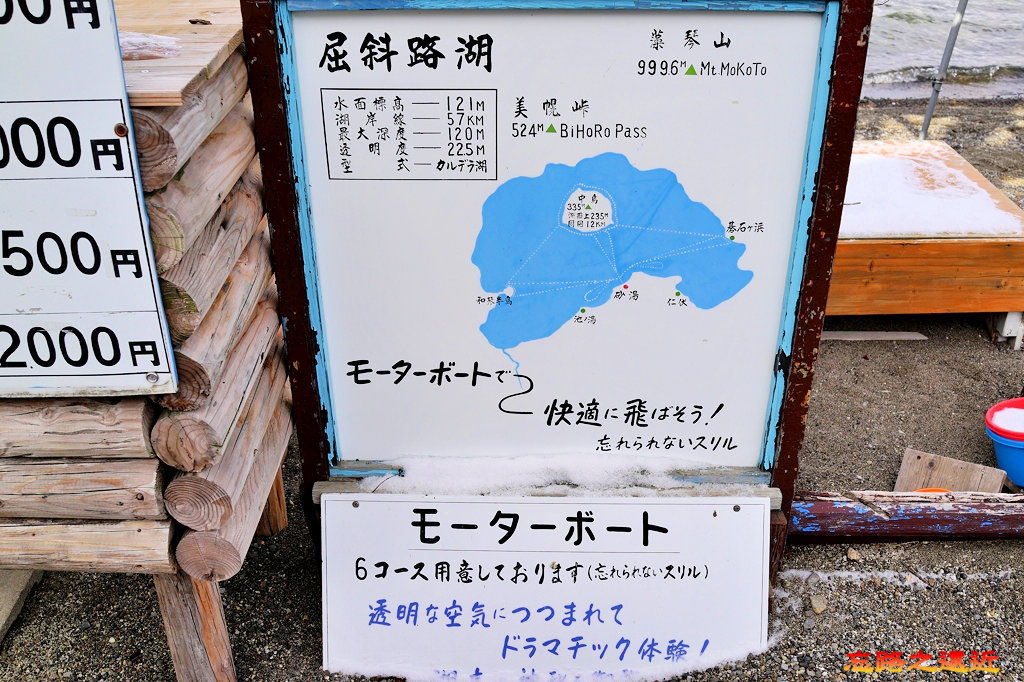 00円
000円
500円
2000円
屈斜路湖
水面標高 ── 121M
湖岸線 ── 57KM
最大深度 ── 120M
透明度 ── 22.5M
型式 ── カルデラ湖
藻琴山
999.6M▲Mt MoKoTo
美幌峠
524M▲BiHoRo Pass
中島
335M▲
湖面上235M
周囲12KM
碁石ヶ浜
和琴半島
砂湯
仁伏
池ノ湯
モーターボートで
快適に飛ばそう!
忘れられないスリル
モーターボート
6コース用意しております(忘れられないスリル)
透明な空気につつまれて
ドラマチック体験!
忘路之遠近